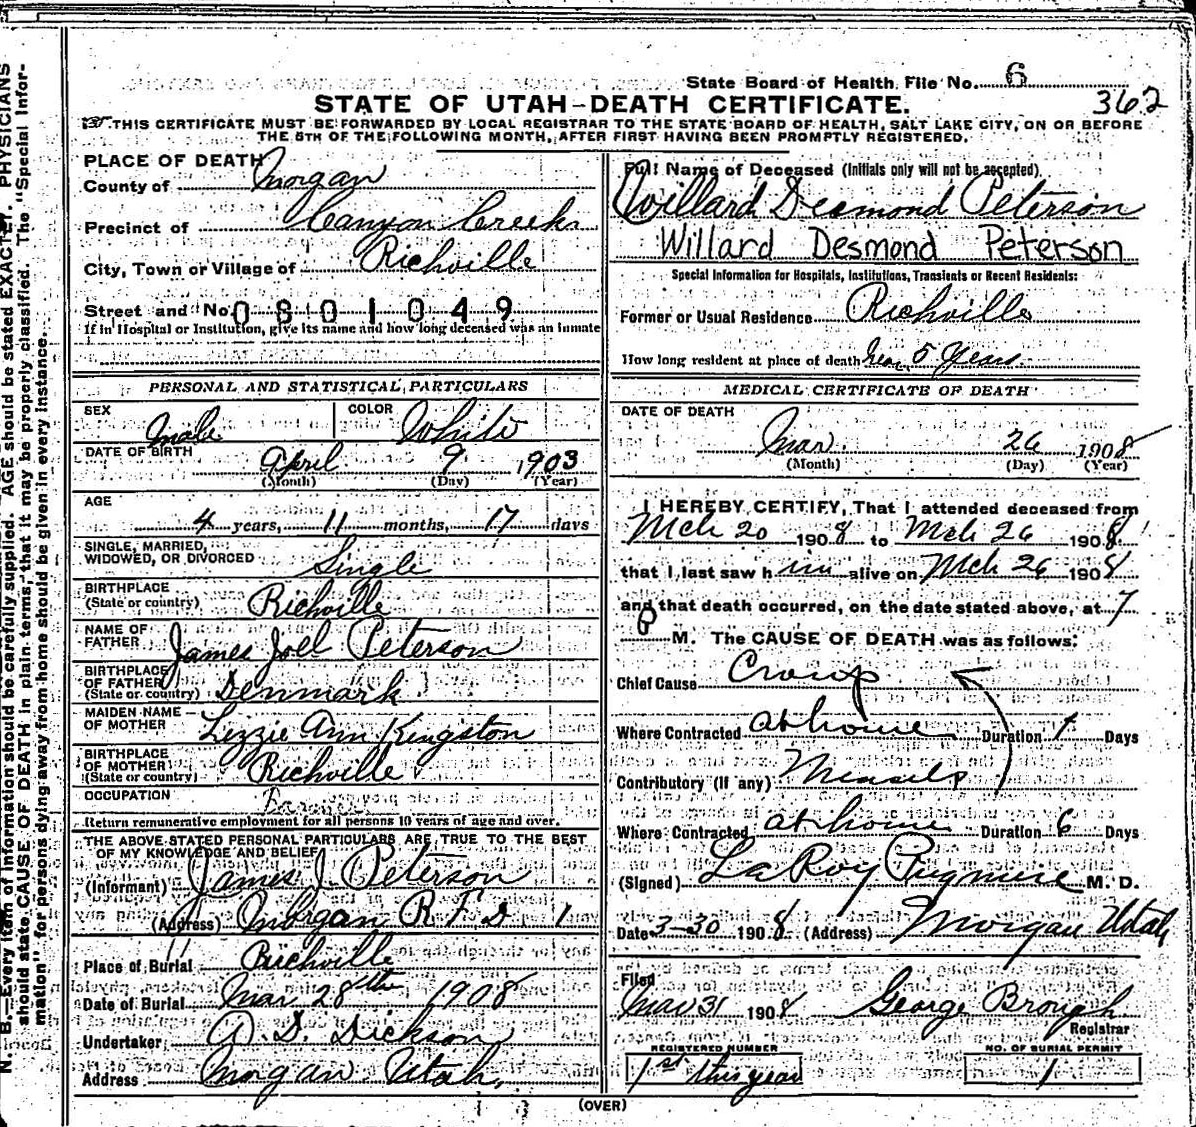 State Board of Health File No. 6
362
STATE OF UTAH—DEATH CERTIFICATE.
THIS CERTIFICATE MUST BE FORWARDED BY LOCAL REGISTRAR TO THE STATE BOARD OF HEALTH, SALT LAKE CITY, ON OR BEFORE
THE 5TH OF THE FOLLOWING MONTH, AFTER FIRST HAVING BEEN PROMPTLY REGISTERED.
PLACE OF DEATH
County of Morgan
Precinct of Canyon Creek
City, Town or Village of Richville
Street and No. 0801049
If in Hospital or Institution, give its name and how long deceased was an inmate
PERSONAL AND STATISTICAL PARTICULARS
SEX Male COLOR White
DATE OF BIRTH April 9 1903
(Month) (Day) (Year)
AGE
4 years, 11 months, 17 days
SINGLE, MARRIED,
WIDOWED, OR DIVORCED Single
BIRTHPLACE
(State or country) Richville
NAME OF
FATHER James Joel Peterson
BIRTHPLACE
OF FATHER
(State or country) Denmark
MAIDEN NAME
OF MOTHER Lizzie Ann Kingston
BIRTHPLACE
OF MOTHER
(State or country) Richville
OCCUPATION
Return remunerative employment for all persons 10 years of age and over.
THE ABOVE STATED PERSONAL PARTICULARS ARE TRUE TO THE BEST
OF MY KNOWLEDGE AND BELIEF
(Informant) James J. Peterson
(Address) Morgan R F D 1
Place of Burial Richville
Date of Burial Mar 28th 1908
Undertaker A. D. Dickson
Address Morgan Utah.
Full Name of Deceased (Initials only will not be accepted)
Willard Desmond Peterson
Willard Desmond Peterson
Special Information for Hospitals, Institutions, Transients or Recent Residents:
Former or Usual Residence Richville
How long resident at place of death near 5 Years
MEDICAL CERTIFICATE OF DEATH
DATE OF DEATH
Mar. 26 1908
(Month) (Day) (Year)
I HEREBY CERTIFY, That I attended deceased from
Mch 20 1908 to Mch 26 1908
that I last saw him alive on Mch 26 1908
and that death occurred, on the date stated above, at 7
P M. The CAUSE OF DEATH was as follows:
Chief Cause Croup
Where Contracted at home Duration 1 Days
Contributory (if any) Measels
Where Contracted at home Duration 6 Days
(Signed) LaRoy Pugmire M. D.
Date 3-30 1908 (Address) Morgan Utah
Filed
Mar 31 1908 George Brough
Registrar
REGISTERED NUMBER
1st this year
NO. OF BURIAL PERMIT
1
(OVER)
N. B.—Every item of information should be carefully supplied. AGE should be stated EXACTLY. PHYSICIANS
should state CAUSE OF DEATH in plain terms, that it may be properly classified. The "Special Infor-
mation" for persons dying away from home should be given in every instance.